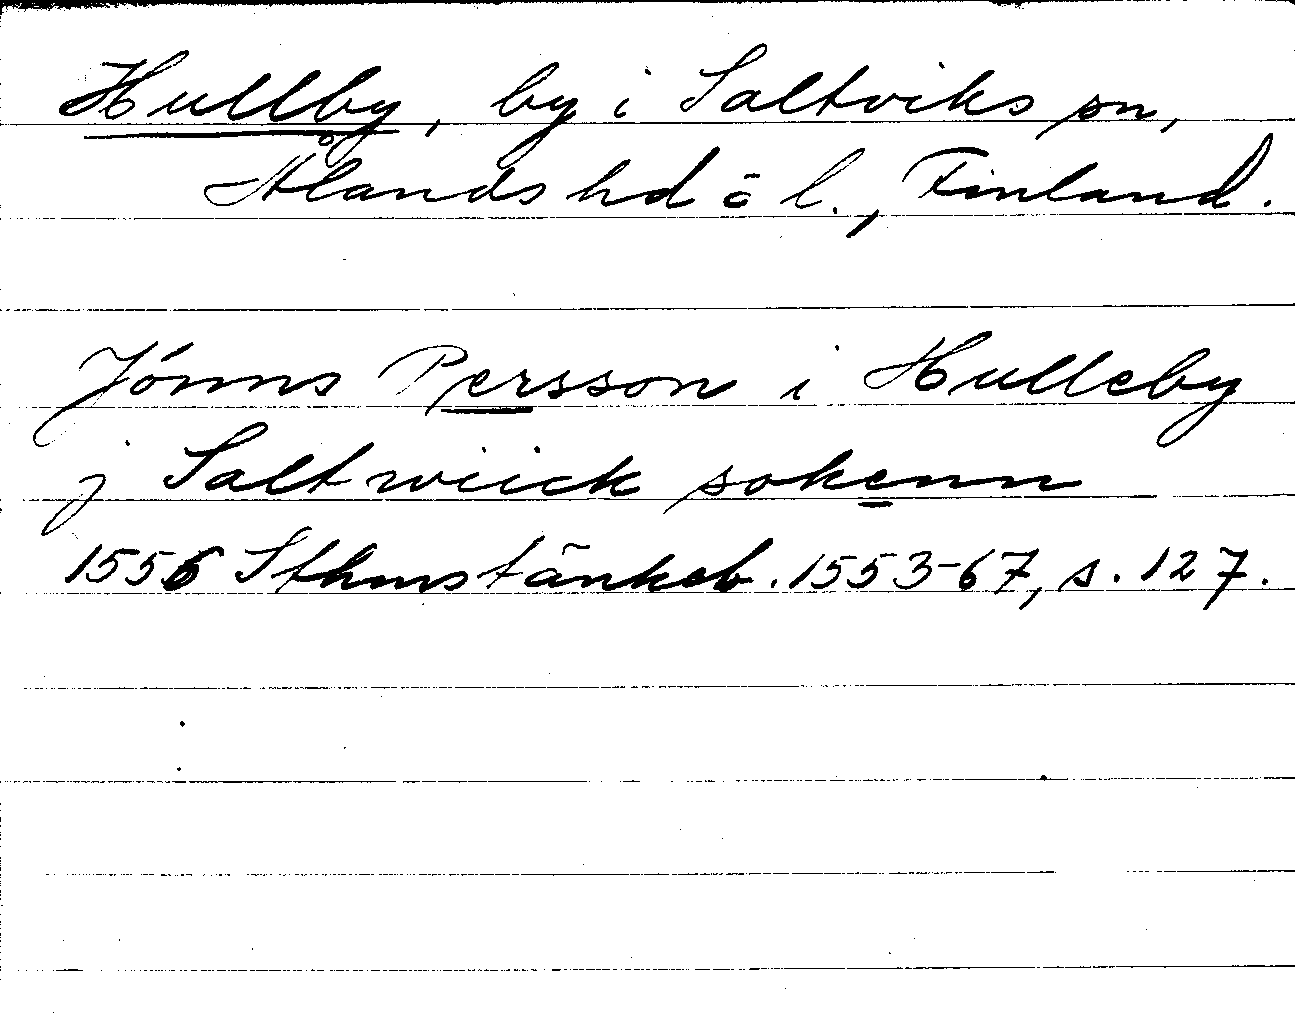 Hullby, by i Saltviks sn,
Ålands hd o l., Finland.
Jönns Persson i Hulleby
j Saltwiick sokenn
1556 Sthmstänkeb. 1553-67, s. 127.